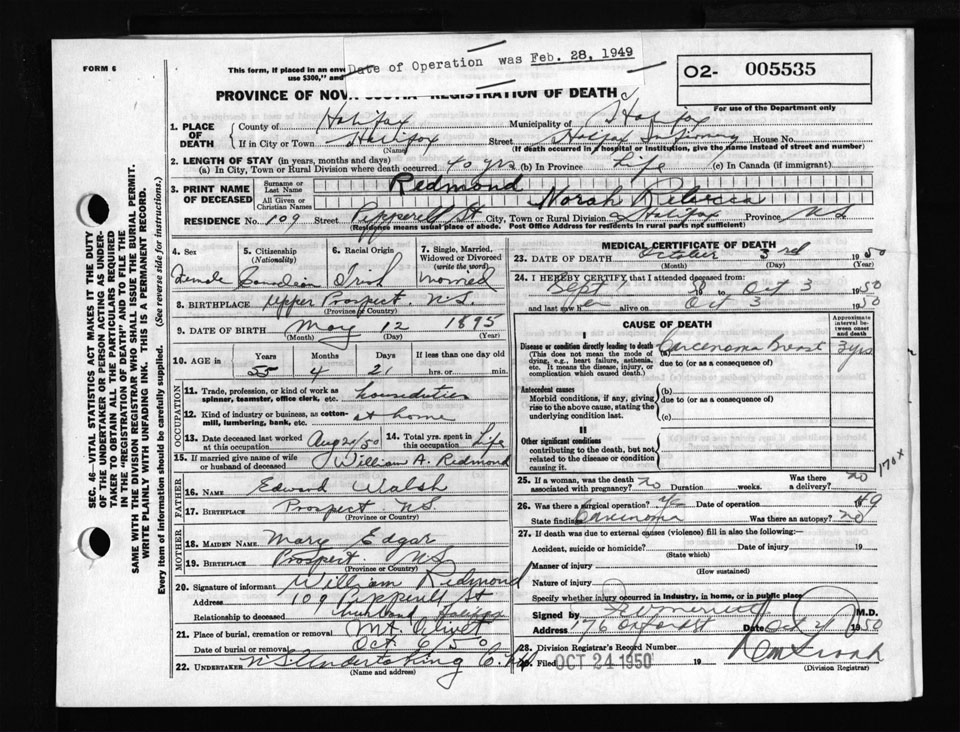 FORM 6
This form, if placed in an enve
use $300," and
Date of Operation was Feb. 28, 1949
O2- 005535
For use of the Department only
PROVINCE OF NOVA SCOTIA REGISTRATION OF DEATH
1. PLACE OF DEATH
County of Halifax Municipality of Halifax
If in City or Town Halifax Street Halifax Infirmary House No.
(Name) (If death occurred in a hospital or institution, give the name instead of street and number)
2. LENGTH OF STAY (in years, months and days)
(a) In City, Town or Rural Division where death occurred 40 yrs (b) In Province Life (c) In Canada (if immigrant)
3. PRINT NAME OF DECEASED
Surname or Last Name Redmond
All Given or Christian Names Norah Rebecca
RESIDENCE No. 109 Street Pepperell St City, Town or Rural Division Halifax Province N.S.
(Residence means usual place of abode. Post Office Address for residents in rural parts not sufficient)
4. Sex Female
5. Citizenship (Nationality) Canadian
6. Racial Origin Irish
7. Single, Married, Widowed or Divorced (write the word) Married
8. BIRTHPLACE Upper Prospect N.S.
(Province or Country)
9. DATE OF BIRTH May 12 1895
(Month) (Day) (Year)
10. AGE in Years Months Days If less than one day old
55 4 21 hrs. or min.
OCCUPATION
11. Trade, profession, or kind of work as spinner, teamster, office clerk, etc. houseduties
12. Kind of industry or business, as cotton-mill, lumbering, bank, etc. at home
13. Date deceased last worked at this occupation Aug 20/50 14. Total yrs. spent in this occupation Life
15. If married give name of wife or husband of deceased William A. Redmond
FATHER
16. NAME Edward Walsh
17. BIRTHPLACE Prospect N.S.
(Province or Country)
MOTHER
18. MAIDEN NAME Mary Edgar
19. BIRTHPLACE Prospect N.S.
(Province or Country)
20. Signature of informant William Redmond
Address 109 Pepperell St
Relationship to deceased husband Halifax
21. Place of burial, cremation or removal Mt. Olivet
Date of burial or removal Oct 6/50
22. UNDERTAKER N.S. Undertaking Co.
(Name and address)
MEDICAL CERTIFICATE OF DEATH
23. DATE OF DEATH October 3rd 1950
(Month) (Day) (Year)
24. I HEREBY CERTIFY that I attended deceased from
Sept to Oct 3 1950
and last saw her alive on Oct 3 1950
CAUSE OF DEATH
Approximate interval between onset and death
I
Disease or condition directly leading to death (a) Carcenoma Breast 3 yrs
(This does not mean the mode of dying, e.g., heart failure, asthenia, etc. It means the disease, injury, or complication which caused death.)
due to (or as a consequence of)
Antecedent causes (b)
Morbid conditions, if any, giving rise to the above cause, stating the underlying condition last.
due to (or as a consequence of)
(c)
II
Other significant conditions contributing to the death, but not related to the disease or condition causing it.
170x
25. If a woman, was the death associated with pregnancy? no Duration weeks. Was there a delivery? no
26. Was there a surgical operation? Date of operation 1949
State findings Carcenoma Was there an autopsy? no
27. If death was due to external causes (violence) fill in also the following:—
Accident, suicide or homicide? Date of injury 19
(State which)
Manner of injury
(How sustained)
Nature of injury
Specify whether injury occurred in industry, in home, or in public place
Signed by M.D.
Address 76 Oxford St Date Oct 1950
28. Division Registrar's Record Number
29. Filed OCT 24 1950 19
(Division Registrar)
SEC. 46—VITAL STATISTICS ACT MAKES IT THE DUTY
OF THE UNDERTAKER OR PERSON ACTING AS UNDER-
TAKER TO OBTAIN ALL THE PARTICULARS REQUIRED
IN THE "REGISTRATION OF DEATH" AND TO FILE THE
SAME WITH THE DIVISION REGISTRAR WHO SHALL ISSUE THE BURIAL PERMIT.
WRITE PLAINLY WITH UNFADING INK. THIS IS A PERMANENT RECORD.
Every item of information should be carefully supplied. (See reverse side for instructions.)